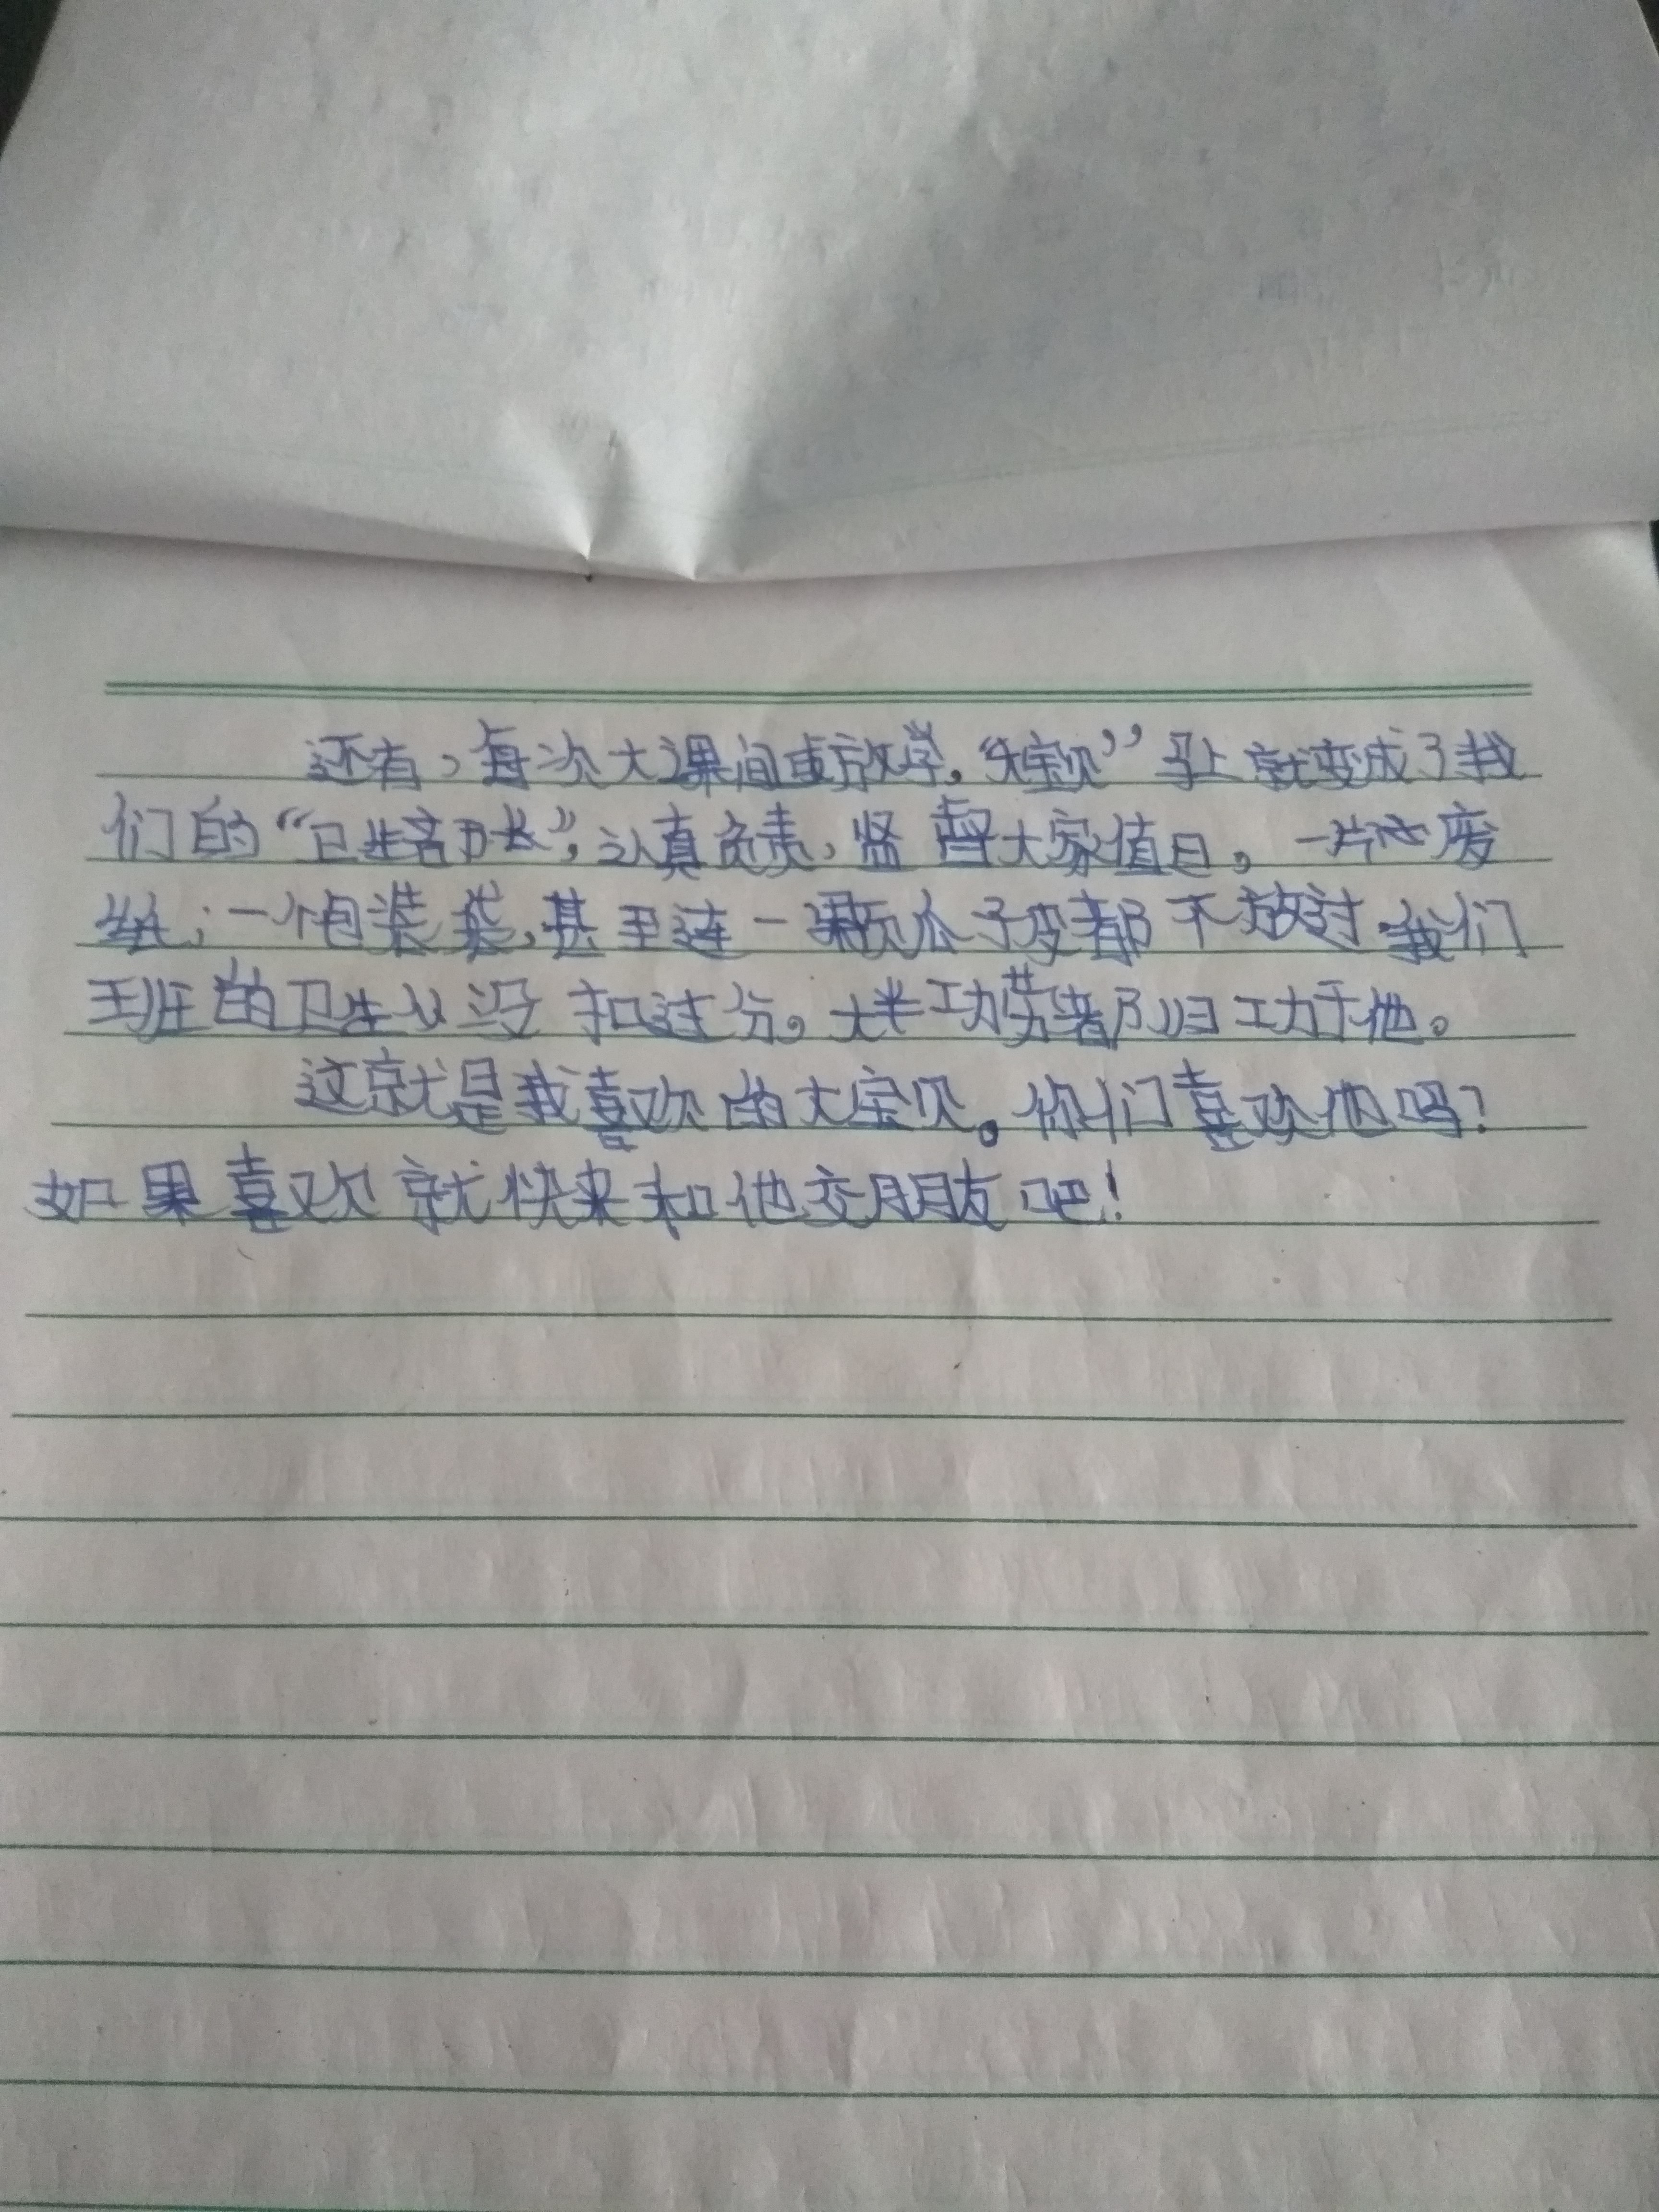 还有，每次大课间或放学，“大宝贝”马上就变成了我
们的“卫生部长”，认真负责，监督大家值日。一片废
纸；一个包装袋，甚至连一颗瓜子皮都不放过。我们
班的卫生从没扣过分。大半功劳都归功于他。
这就是我喜欢的大宝贝。你们喜欢他吗？
如果喜欢就快来和他交朋友吧！